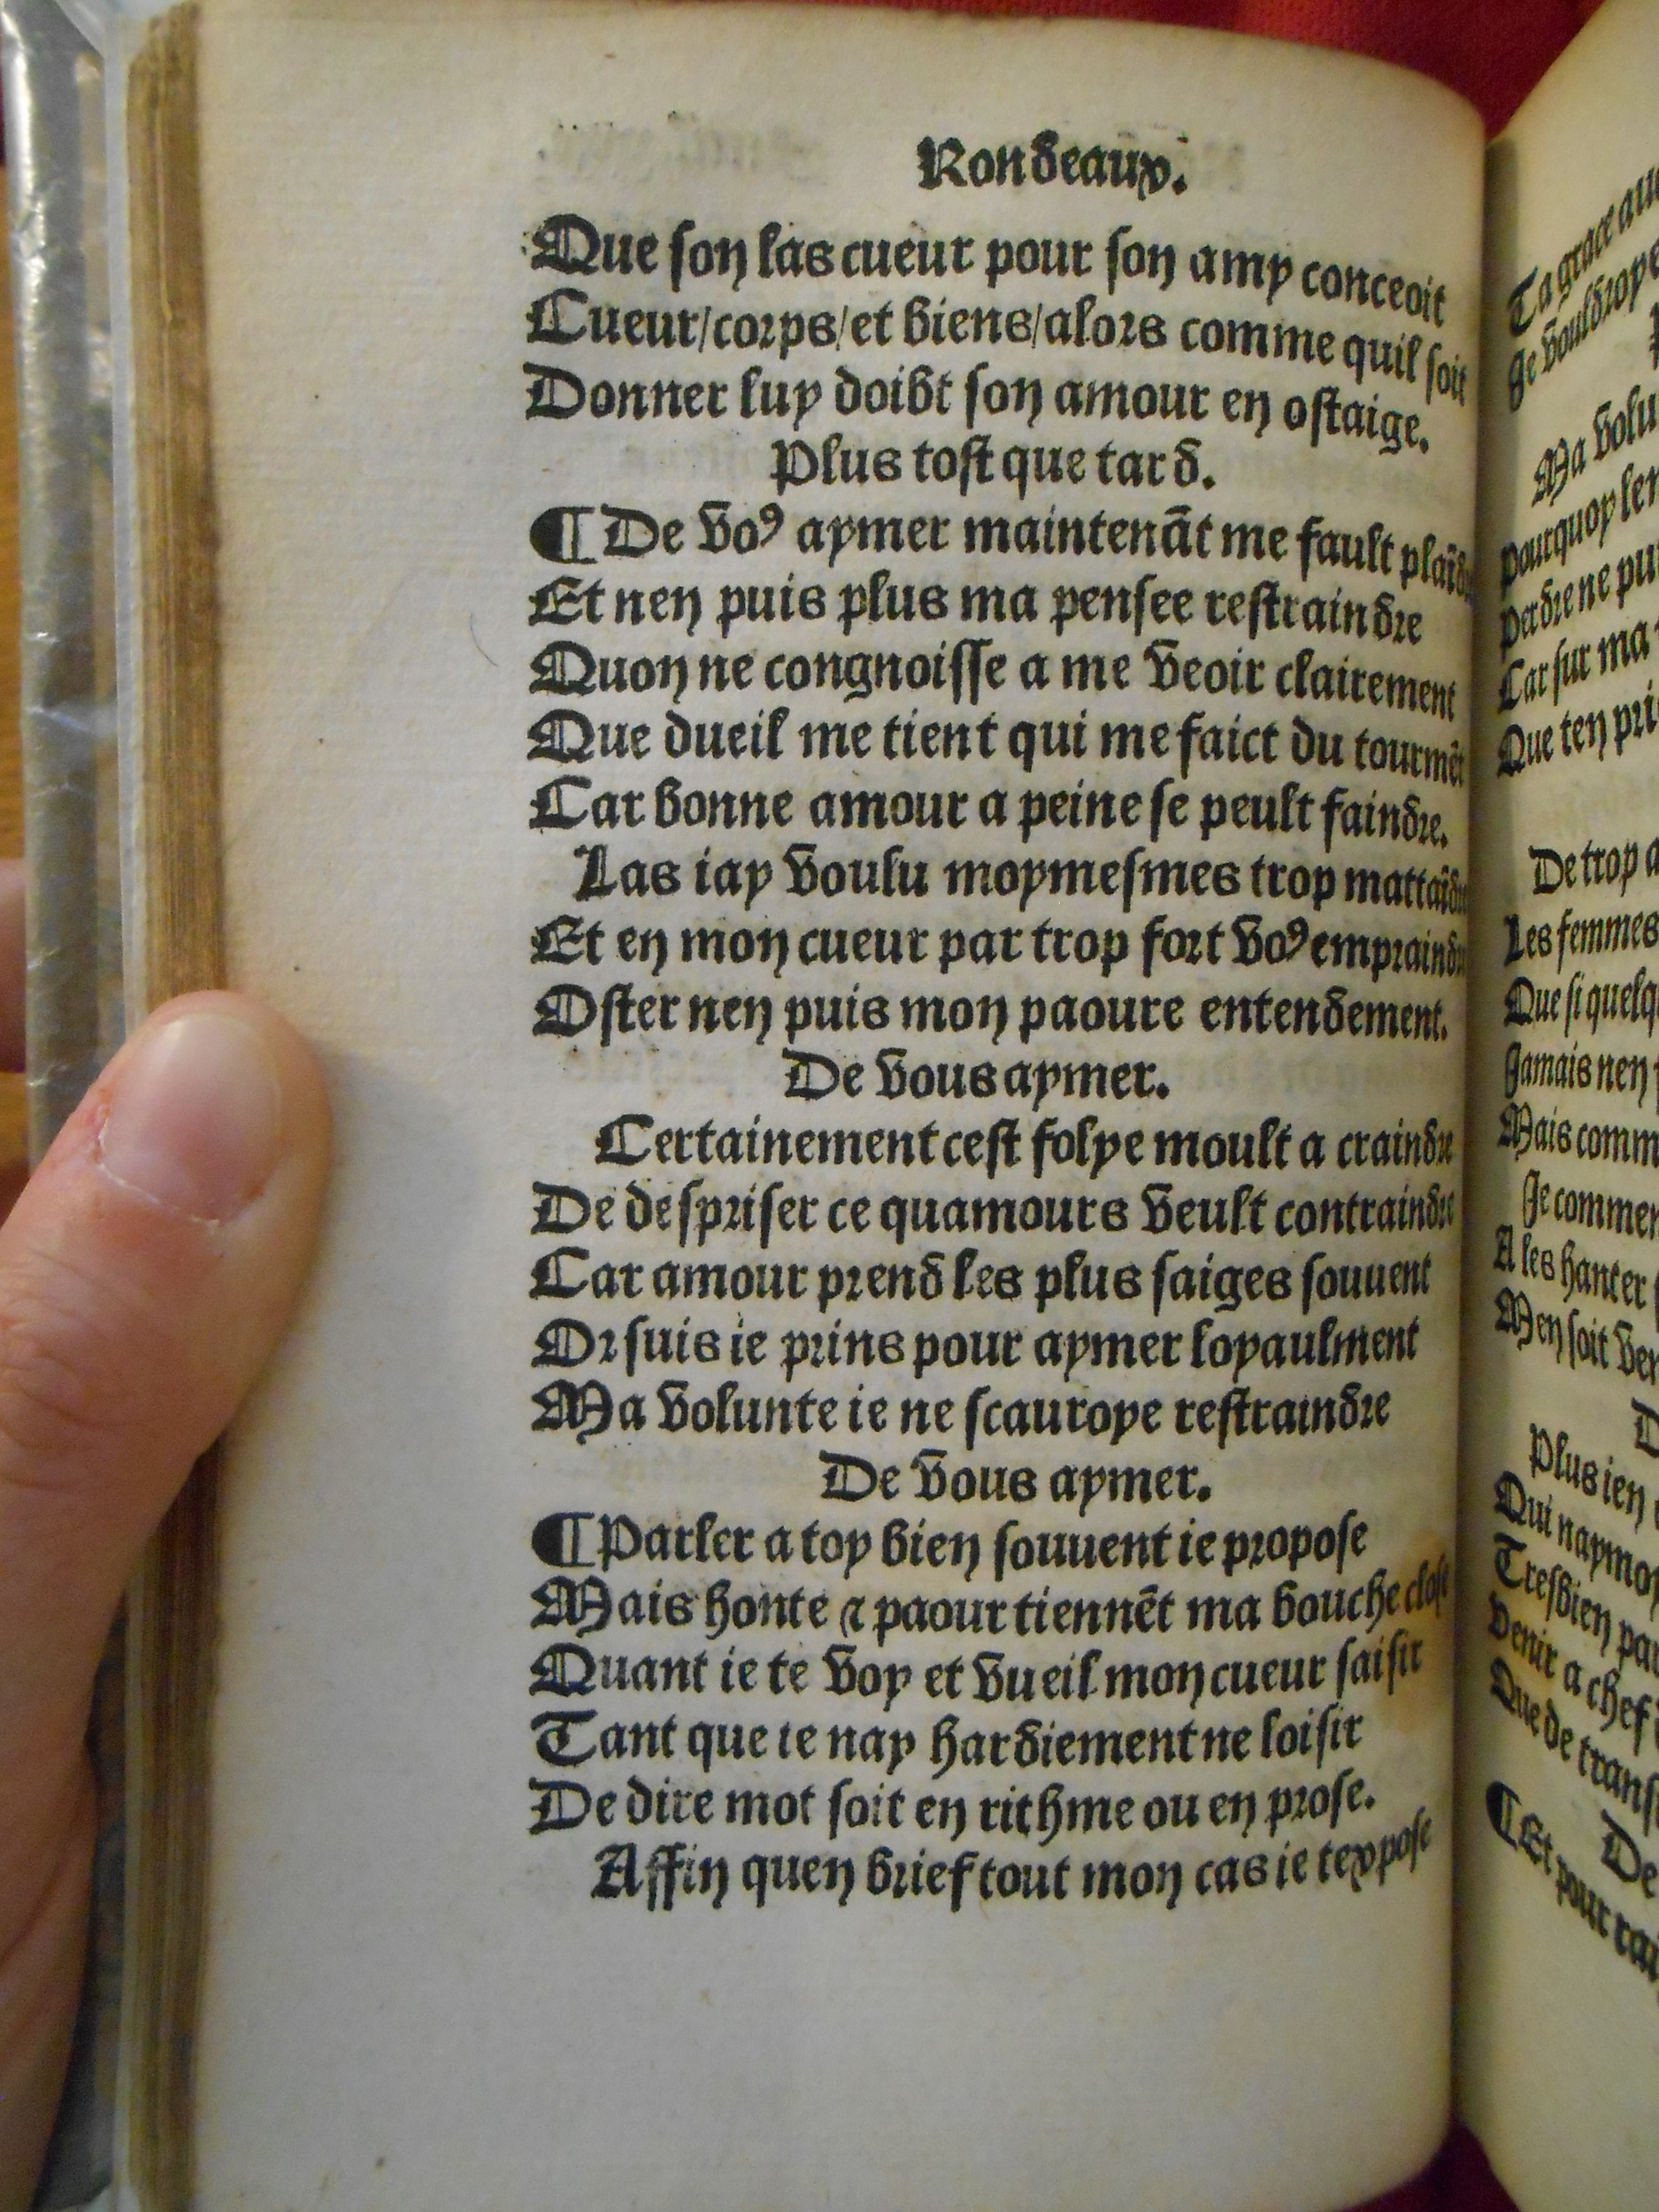 Rondeaux.
Que son las cueur pour son amy conceoit
Cueur/corps/et biens/alors comme quil soit
Donner luy doibt son amour en ostaige.
Plus tost que tard.
¶ De voꝰ aymer maintenãt me fault
Et nen puis plus ma pensee restraindre
Quon ne congnoisse a me veoir clairement
Que dueil me tient qui me faict du tourmẽt
Car bonne amour a peine se peult faindre.
Las iay voulu moymesmes trop
Et en mon cueur par trop fort voꝰ empraindre
Oster nen puis mon paoure entendement.
De vous aymer.
Certainement cest folye moult a craindre
De despriser ce quamours veult contraindre
Car amour prend les plus saiges souuent
Or suis ie prins pour aymer loyaulment
Ma volunte ie ne scauroye restraindre
De vous aymer.
¶ Parler a toy bien souuent ie propose
Mais honte ⁊ paour tiennẽt ma bouche close
Quant ie te voy et vueil mon cueur saisir
Tant que ie nay hardiement ne loisir
De dire mot soit en rithme ou en prose.
Affin quen brief tout mon cas ie texpose
Ta grace
Je
Ma
pourquoy
Perdre ne
Car sur ma
Que ten
De trop
Les femmes
Que si
Jamais nen
Mais
Je
A les hanter
Men soit
Plus ien
Qui
Tresbien
Venir a chef
Que de
De
¶ Et pour